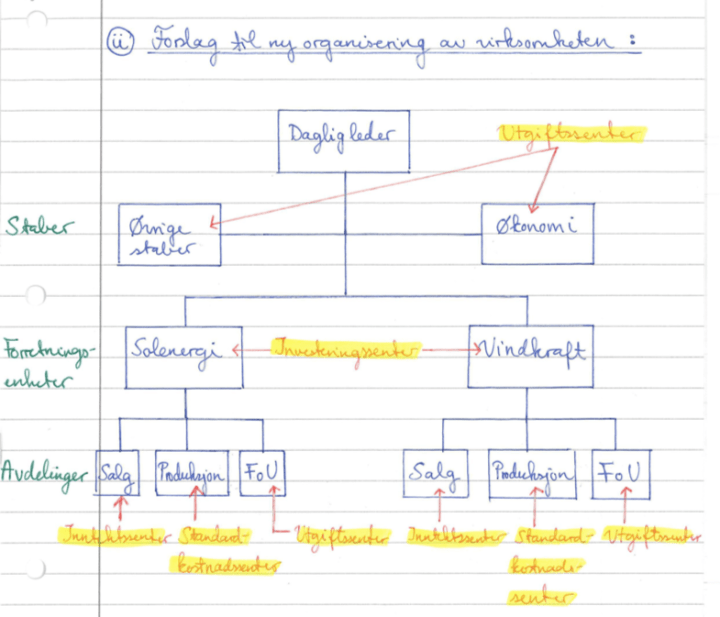 ii Forslag til ny organisering av virksomheten :
Daglig leder
Utgiftssenter
Staber
Øvrige
staber
Økonomi
Forretnings-
enheter
Solenergi
Investeringssenter
Vindkraft
Avdelinger
Salg
Produksjon
FoU
Salg
Produksjon
FoU
Inntektssenter
Standard-
kostnadssenter
Utgiftssenter
Inntektssenter
Standard-
kostnads-
senter
Utgiftssenter